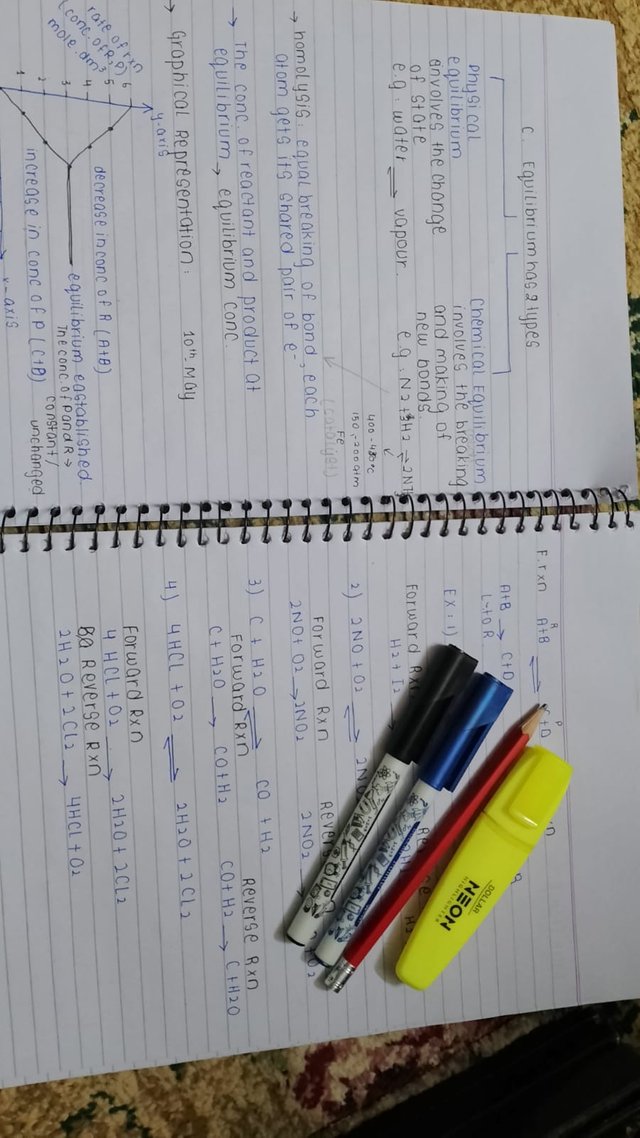 C. Equilibrium has 2 types
Physical
equilibrium
involves the change
of state
e.g: water ⇌ vapour.
Chemical Equilibrium
involves the breaking
and making of
new bonds.
e.g. N2+3H2 ⇌ 2NH3
400-450°C
Fe
→ homolysis: equal breaking of bond, each
atom gets its shared pair of e-
→ The conc. of reactant and product at
equilibrium → equilibrium conc.
→ Graphical Representation: 10th May
rate of rxn
(conc. of R, P)
mole.dm³
y-axis
6
5
4
3
2
1
decrease in conc of R (A+B)
equilibrium eastablished
The conc. of P and R →
constant/
unchanged
increase in conc of P (C+D)
x-axis
F. rxn
R P
A+B ⇌ C+D
A+B → C+D
L to R
EX: 1)
Forward Rxn
H2 + I2 →
H2
2) 2NO + O2 ⇌ 2NO
Forward Rxn
2NO + O2 → 2NO2
Revers
2NO2 →
3) C + H2O ⇌ CO + H2
Forward Rxn
C + H2O → CO + H2
Reverse Rxn
CO + H2 → C + H2O
4) 4HCl + O2 ⇌ 2H2O + 2Cl2
Forward Rxn
4HCl + O2 → 2H2O + 2Cl2
Reverse Rxn
2H2O + 2Cl2 → 4HCl + O2
DOLLAR
NEON
HIGHLIGHTER